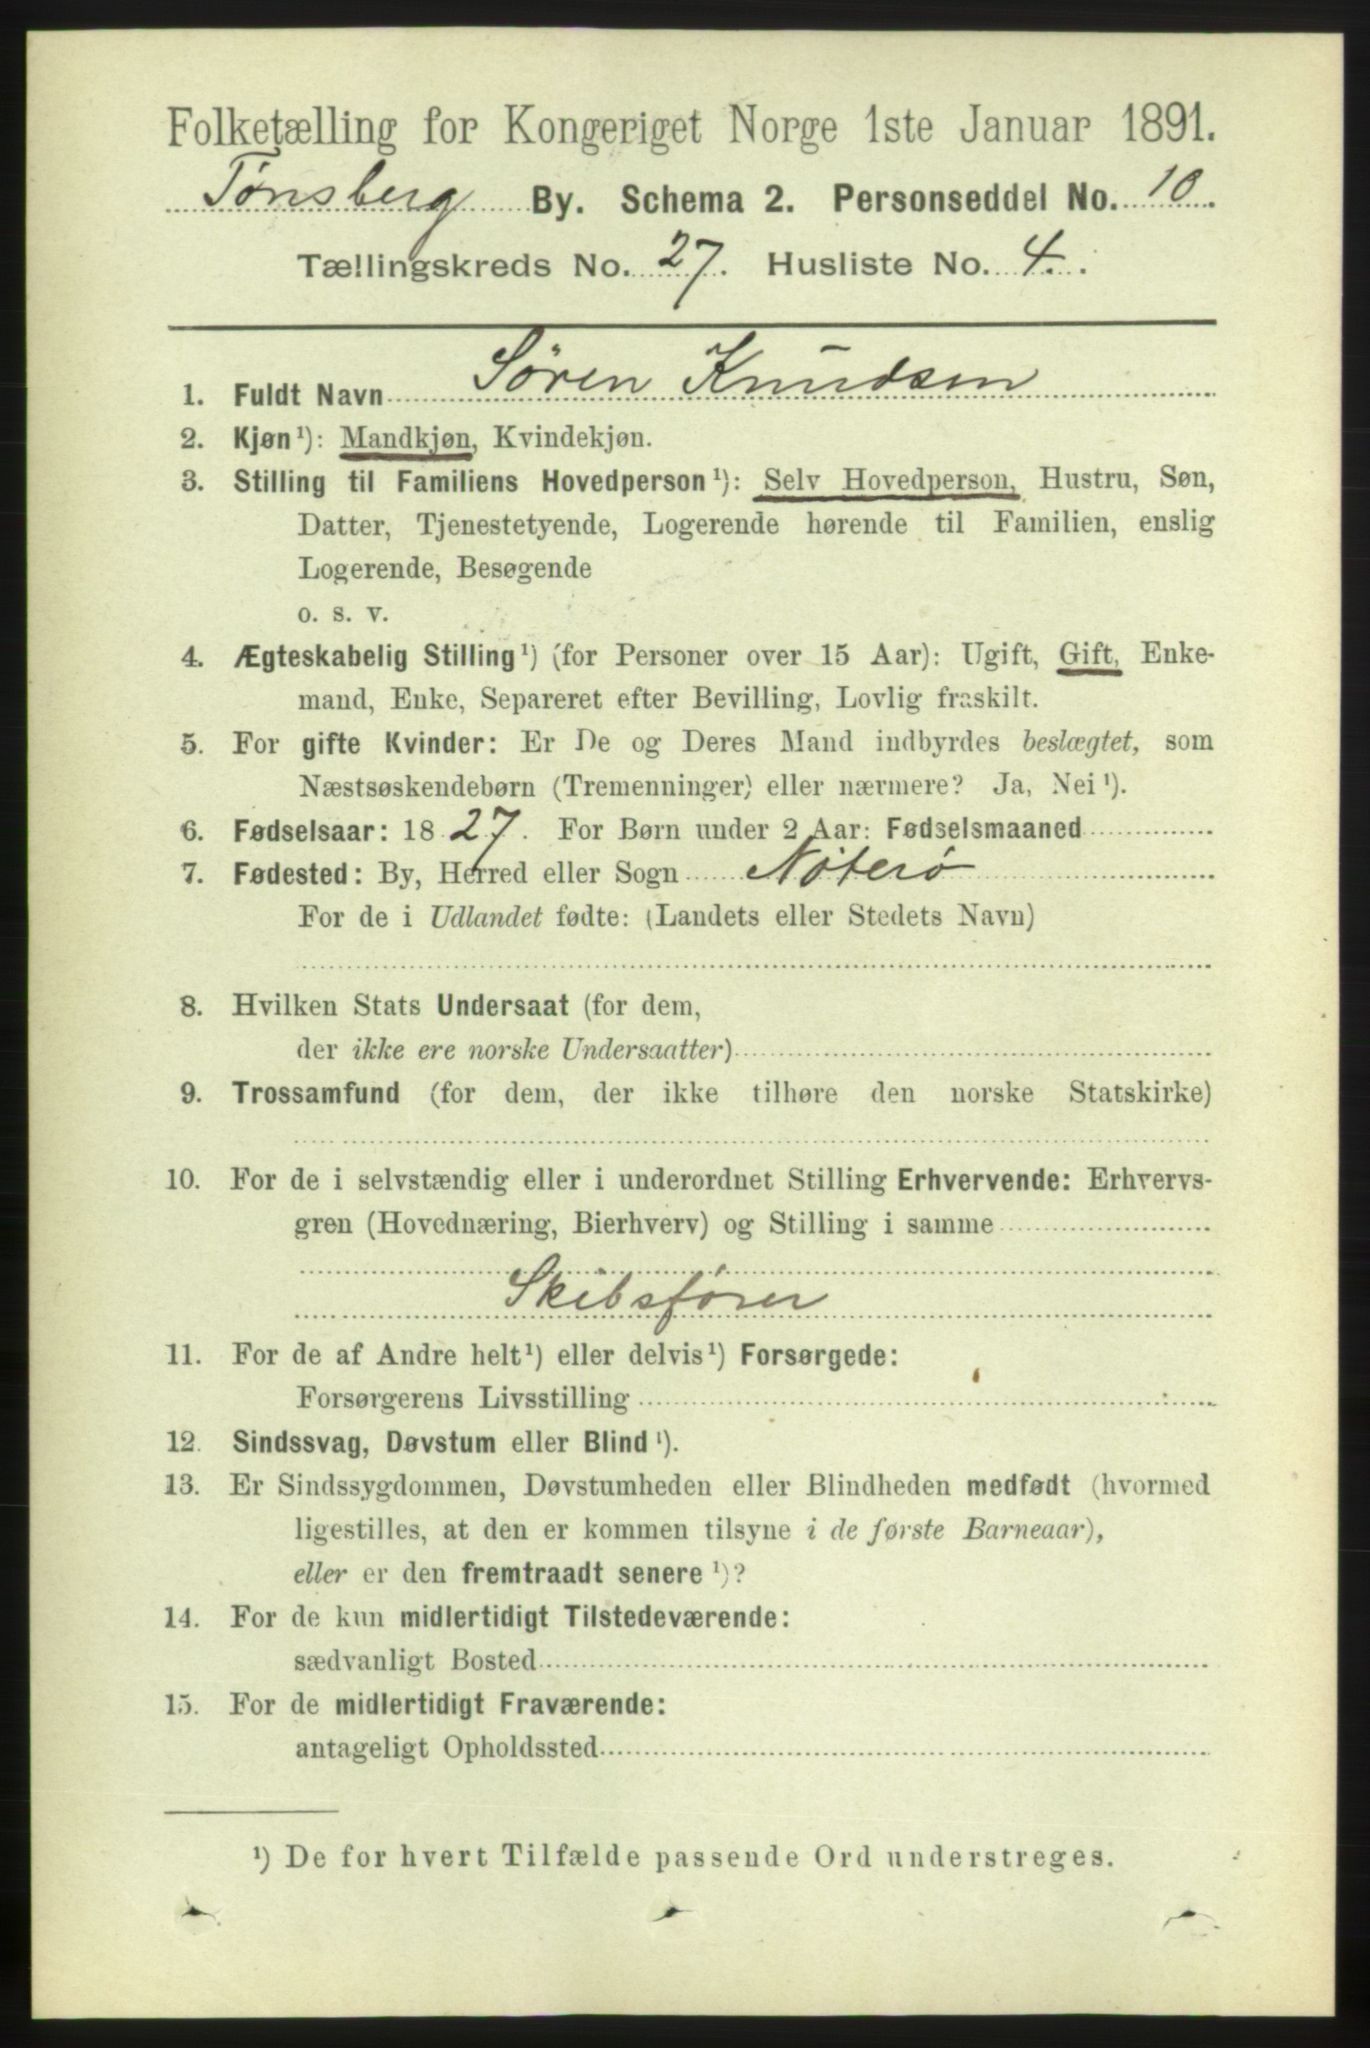 Folketælling for Kongeriget Norge 1ste Januar 1891.
Tønsberg By. Schema 2. Personseddel No. 10.
Tællingskreds No. 27. Husliste No. 4.
1. Fuldt Navn Søren Knudsen
2. Kjøn¹): Mandkjøn, Kvindekjøn.
3. Stilling til Familiens Hovedperson¹): Selv Hovedperson, Hustru, Søn,
Datter, Tjenestetyende, Logerende hørende til Familien, enslig
Logerende, Besøgende
o. s. v.
4. Ægteskabelig Stilling¹) (for Personer over 15 Aar): Ugift, Gift, Enke-
mand, Enke, Separeret efter Bevilling, Lovlig fraskilt.
5. For gifte Kvinder: Er De og Deres Mand indbyrdes beslægtet, som
Næstsøskendebørn (Tremenninger) eller nærmere? Ja, Nei¹).
6. Fødselsaar: 1827. For Børn under 2 Aar: Fødselsmaaned
7. Fødested: By, Herred eller Sogn Nøterø
For de i Udlandet fødte: (Landets eller Stedets Navn)
8. Hvilken Stats Undersaat (for dem,
der ikke ere norske Undersaatter)
9. Trossamfund (for dem, der ikke tilhøre den norske Statskirke)
10. For de i selvstændig eller i underordnet Stilling Erhvervende: Erhvervs-
gren (Hovednæring, Bierhverv) og Stilling i samme
Skibsfører
11. For de af Andre helt¹) eller delvis¹) Forsørgede:
Forsørgerens Livsstilling
12. Sindssvag, Døvstum eller Blind¹).
13. Er Sindssygdommen, Døvstumheden eller Blindheden medfødt (hvormed
ligestilles, at den er kommen tilsyne i de første Barneaar),
eller er den fremtraadt senere¹)?
14. For de kun midlertidigt Tilstedeværende:
sædvanligt Bosted
15. For de midlertidigt Fraværende:
antageligt Opholdssted
¹) De for hvert Tilfælde passende Ord understreges.